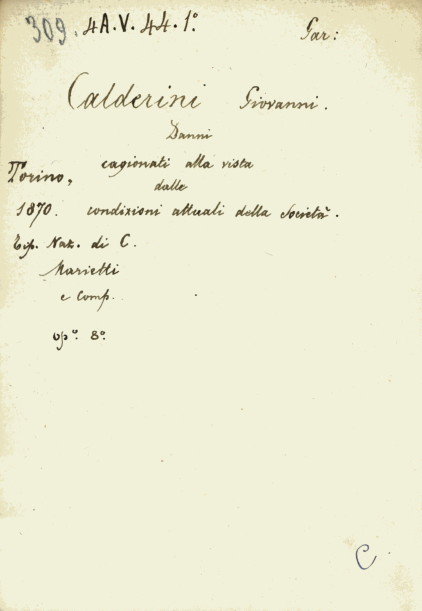 309. 4A.V.44.1º
Gar:
Calderini Giovanni.
Danni
cagionati alla vista
Torino,
dalle
1870. condizioni attuali della Società.
Tip. Naz. di C.
Marietti
e Comp.
opº. 8º.
C